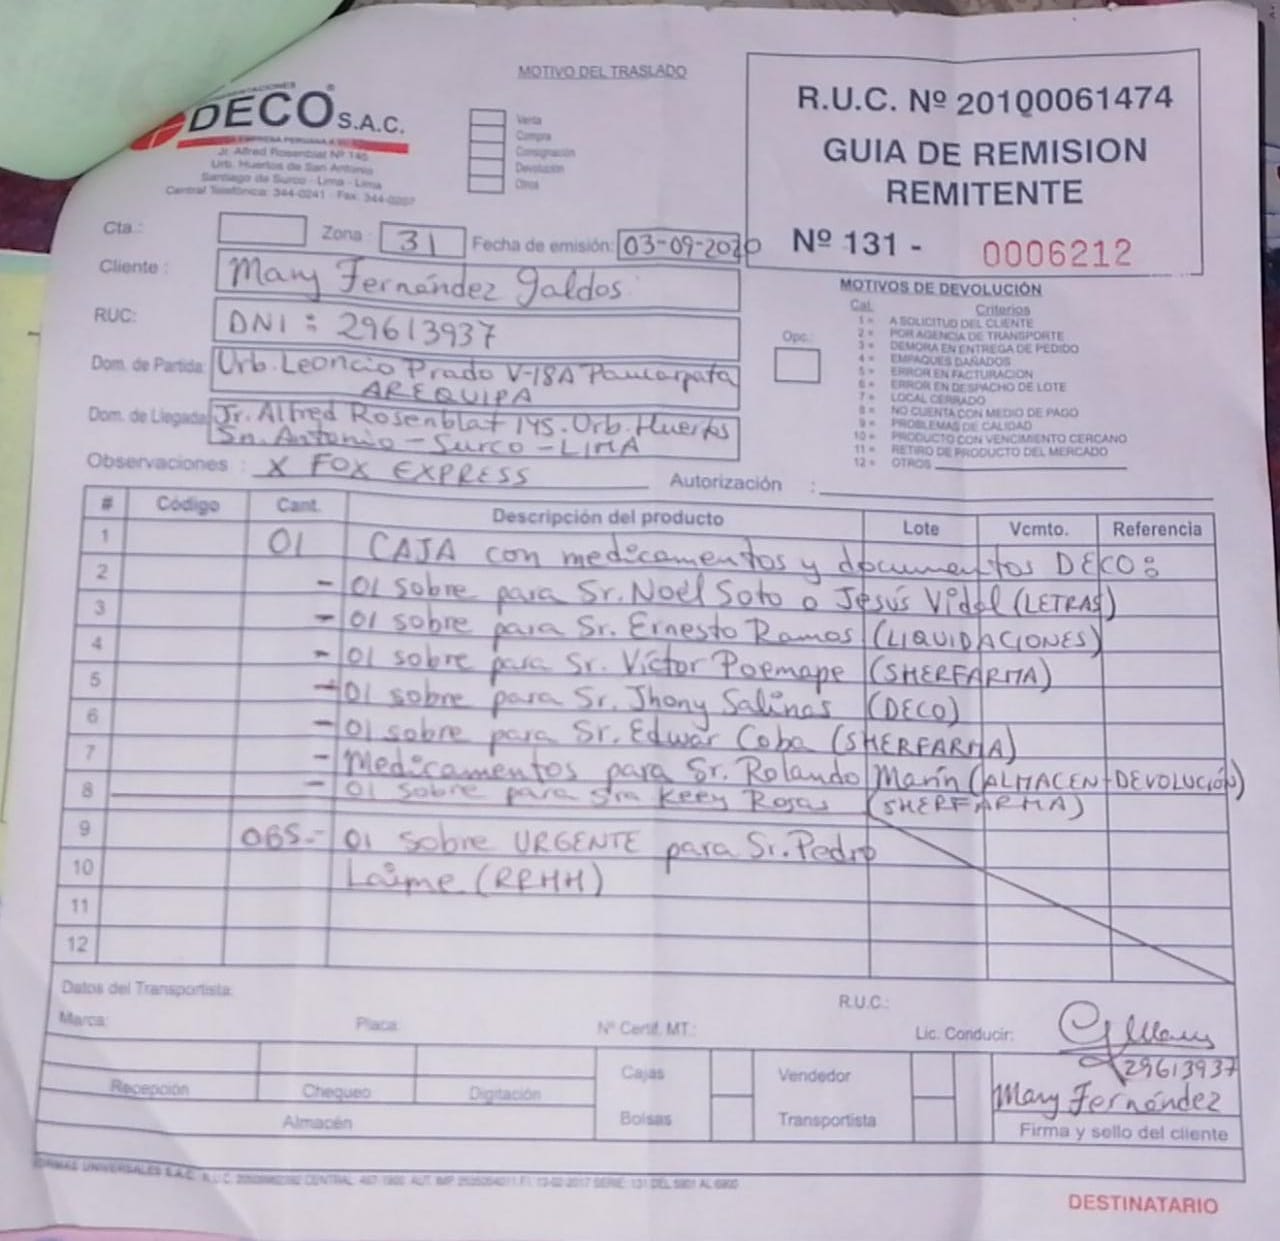 DECO S.A.C.
Jr. Alfred Rosenblat Nº 145
Urb. Huertos de San Antonio
Santiago de Surco - Lima - Lima
Central Telefónica: 344-0241 - Fax: 344-0207
MOTIVO DEL TRASLADO
Venta
Compra
Consignación
Devolución
Otros
R.U.C. Nº 20100061474
GUIA DE REMISION
REMITENTE
Nº 131 - 0006212
Cta.: Zona : 31 Fecha de emisión: 03-09-2020
Cliente : Mary Fernández Galdos
RUC: DNI: 29613937
Dom. de Partida: Urb. Leoncio Prado V-18A Paucarpata
AREQUIPA
Dom. de Llegada: Jr. Alfred Rosenblat 145. Urb. Huertos
Sn. Antonio - Surco - LIMA
Observaciones : X FOX EXPRESS
Autorización :
Opc.:
MOTIVOS DE DEVOLUCIÓN
Cal. Criterios
1 = A SOLICITUD DEL CLIENTE
2 = POR AGENCIA DE TRANSPORTE
3 = DEMORA EN ENTREGA DE PEDIDO
4 = EMPAQUES DAÑADOS
5 = ERROR EN FACTURACION
6 = ERROR EN DESPACHO DE LOTE
7 = LOCAL CERRADO
8 = NO CUENTA CON MEDIO DE PAGO
9 = PROBLEMAS DE CALIDAD
10 = PRODUCTO CON VENCIMIENTO CERCANO
11 = RETIRO DE PRODUCTO DEL MERCADO
12 = OTROS
# Código Cant. Descripción del producto Lote Vcmto. Referencia
1 01 CAJA con medicamentos y documentos DECO:
2 - 01 sobre para Sr. Noël Soto o Jesús Vidal (LETRAS)
3 - 01 sobre para Sr. Ernesto Ramos (LIQUIDACIONES)
4 - 01 sobre para Sr. Víctor Poemape (SHERFARMA)
5 - 01 sobre para Sr. Jhony Salinas (DECO)
6 - 01 sobre para Sr. Edwar Coba (SHERFARMA)
7 - Medicamentos para Sr. Rolando Marín (ALMACEN-DEVOLUCIÓN)
8 - 01 sobre para Sra Keey Rosas (SHERFARMA)
9 OBS.- 01 sobre URGENTE para Sr. Pedro
10 Laime (RRHH)
11
12
Datos del Transportista:
R.U.C.:
Marca: Placa: Nº Certif. MT.: Lic. Conducir:
Recepción Chequeo Digitación
Almacén
Cajas
Bolsas
Vendedor
Transportista
29613937
Mary Fernández
Firma y sello del cliente
DESTINATARIO